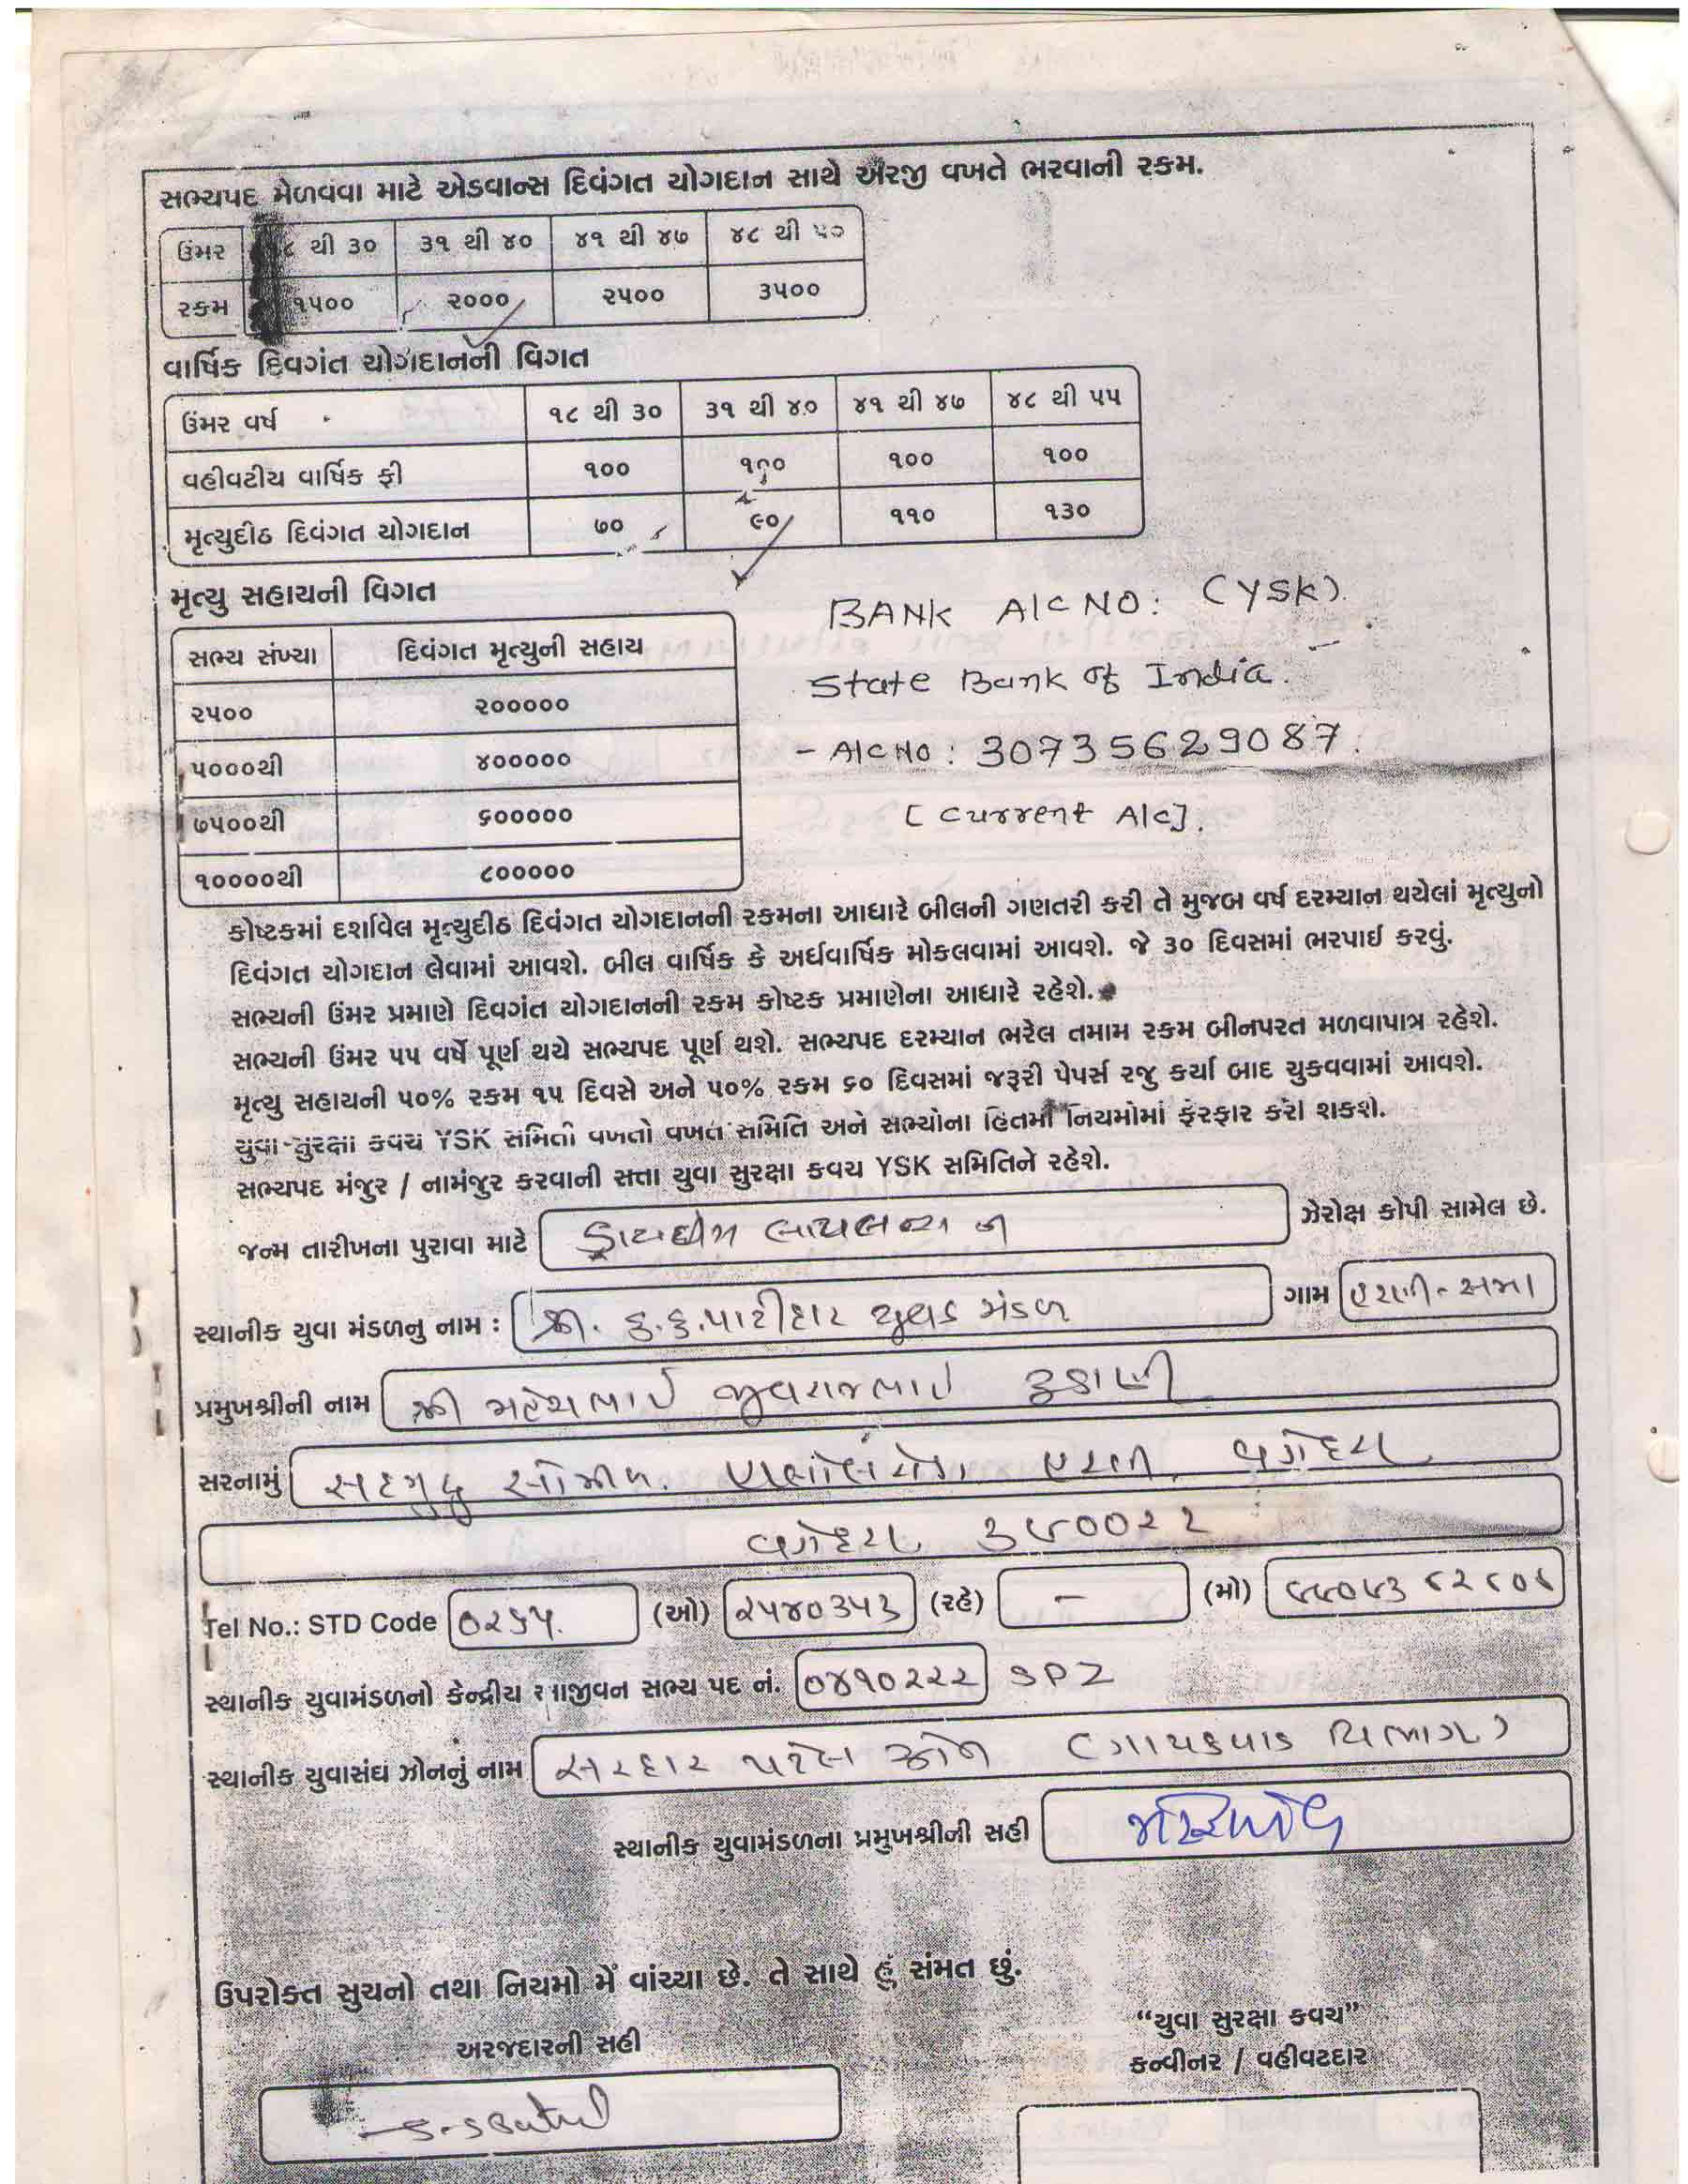 સભ્યપદ મેળવવા માટે એડવાન્સ દિવંગત યોગદાન સાથે અરજી વખતે ભરવાની રકમ.
ઉંમર ૮ થી ૩૦ ૩૧ થી ૪૦ ૪૧ થી ૪૭ ૪૮ થી ૫૦
રકમ ૧૫૦૦ ૨૦૦૦ ૨૫૦૦ ૩૫૦૦
વાર્ષિક દિવગંત યોગદાનની વિગત
ઉંમર વર્ષ ૧૮ થી ૩૦ ૩૧ થી ૪૦ ૪૧ થી ૪૭ ૪૮ થી ૫૫
વહીવટીય વાર્ષિક ફી ૧૦૦ ૧૦૦ ૧૦૦ ૧૦૦
મૃત્યુદીઠ દિવંગત યોગદાન ૭૦ ૯૦ ૧૧૦ ૧૩૦
મૃત્યુ સહાયની વિગત
સભ્ય સંખ્યા દિવંગત મૃત્યુની સહાય
૨૫૦૦ ૨૦૦૦૦૦
૫૦૦૦થી ૪૦૦૦૦૦
૭૫૦૦થી ૬૦૦૦૦૦
૧૦૦૦૦થી ૮૦૦૦૦૦
BANK A/C NO: (YSK).
State Bank of India.
- A/C NO : 30735629087.
[Current A/c].
કોષ્ટકમાં દર્શાવેલ મૃત્યુદીઠ દિવંગત યોગદાનની રકમના આધારે બીલની ગણતરી કરી તે મુજબ વર્ષ દરમ્યાન થયેલાં મૃત્યુનો
દિવંગત યોગદાન લેવામાં આવશે. બીલ વાર્ષિક કે અર્ધવાર્ષિક મોકલવામાં આવશે. જે ૩૦ દિવસમાં ભરપાઈ કરવું.
સભ્યની ઉંમર પ્રમાણે દિવગંત યોગદાનની રકમ કોષ્ટક પ્રમાણેના આધારે રહેશે.
સભ્યની ઉંમર ૫૫ વર્ષે પૂર્ણ થયે સભ્યપદ પૂર્ણ થશે. સભ્યપદ દરમ્યાન ભરેલ તમામ રકમ બીનપરત મળવાપાત્ર રહેશે.
મૃત્યુ સહાયની ૫૦% રકમ ૧૫ દિવસે અને ૫૦% રકમ ૬૦ દિવસમાં જરૂરી પેપર્સ રજુ કર્યા બાદ ચુકવવામાં આવશે.
યુવા સુરક્ષા કવચ YSK સમિતી વખતો વખત સમિતિ અને સભ્યોના હિતમાં નિયમોમાં ફેરફાર કરી શકશે.
સભ્યપદ મંજુર / નામંજુર કરવાની સત્તા યુવા સુરક્ષા કવચ YSK સમિતિને રહેશે.
જન્મ તારીખના પુરાવા માટે ઝેરોક્ષ કોપી સામેલ છે.
સ્થાનીક યુવા મંડળનુ નામ : શ્રી. ક.ક.પાટીદાર યુવક મંડળ ગામ હરણી-સમા
પ્રમુખશ્રીની નામ શ્રી મહેશભાઈ જીવરાજભાઈ રૂડાણી
સરનામું સદગુરૂ સો મીલ. હરણી. વડોદરા
વડોદરા ૩૯૦૦૨૨
Tel No.: STD Code ૦૨૬૫. (ઓ) ૨૫૪૦૩૫૩ (રહે) - (મો)
સ્થાનીક યુવામંડળનો કેન્દ્રીય આજીવન સભ્ય પદ નં. ૦૪૧૦૨૨૨ SPZ
સ્થાનીક યુવાસંઘ ઝોનનું નામ સરદાર પટેલ ઝોન (ગાયકવાડ વિભાગ)
સ્થાનીક યુવામંડળના પ્રમુખશ્રીની સહી
ઉપરોક્ત સુચનો તથા નિયમો મેં વાંચ્યા છે. તે સાથે હું સંમત છું.
અરજદારની સહી
"યુવા સુરક્ષા કવચ"
કન્વીનર / વહીવટદાર